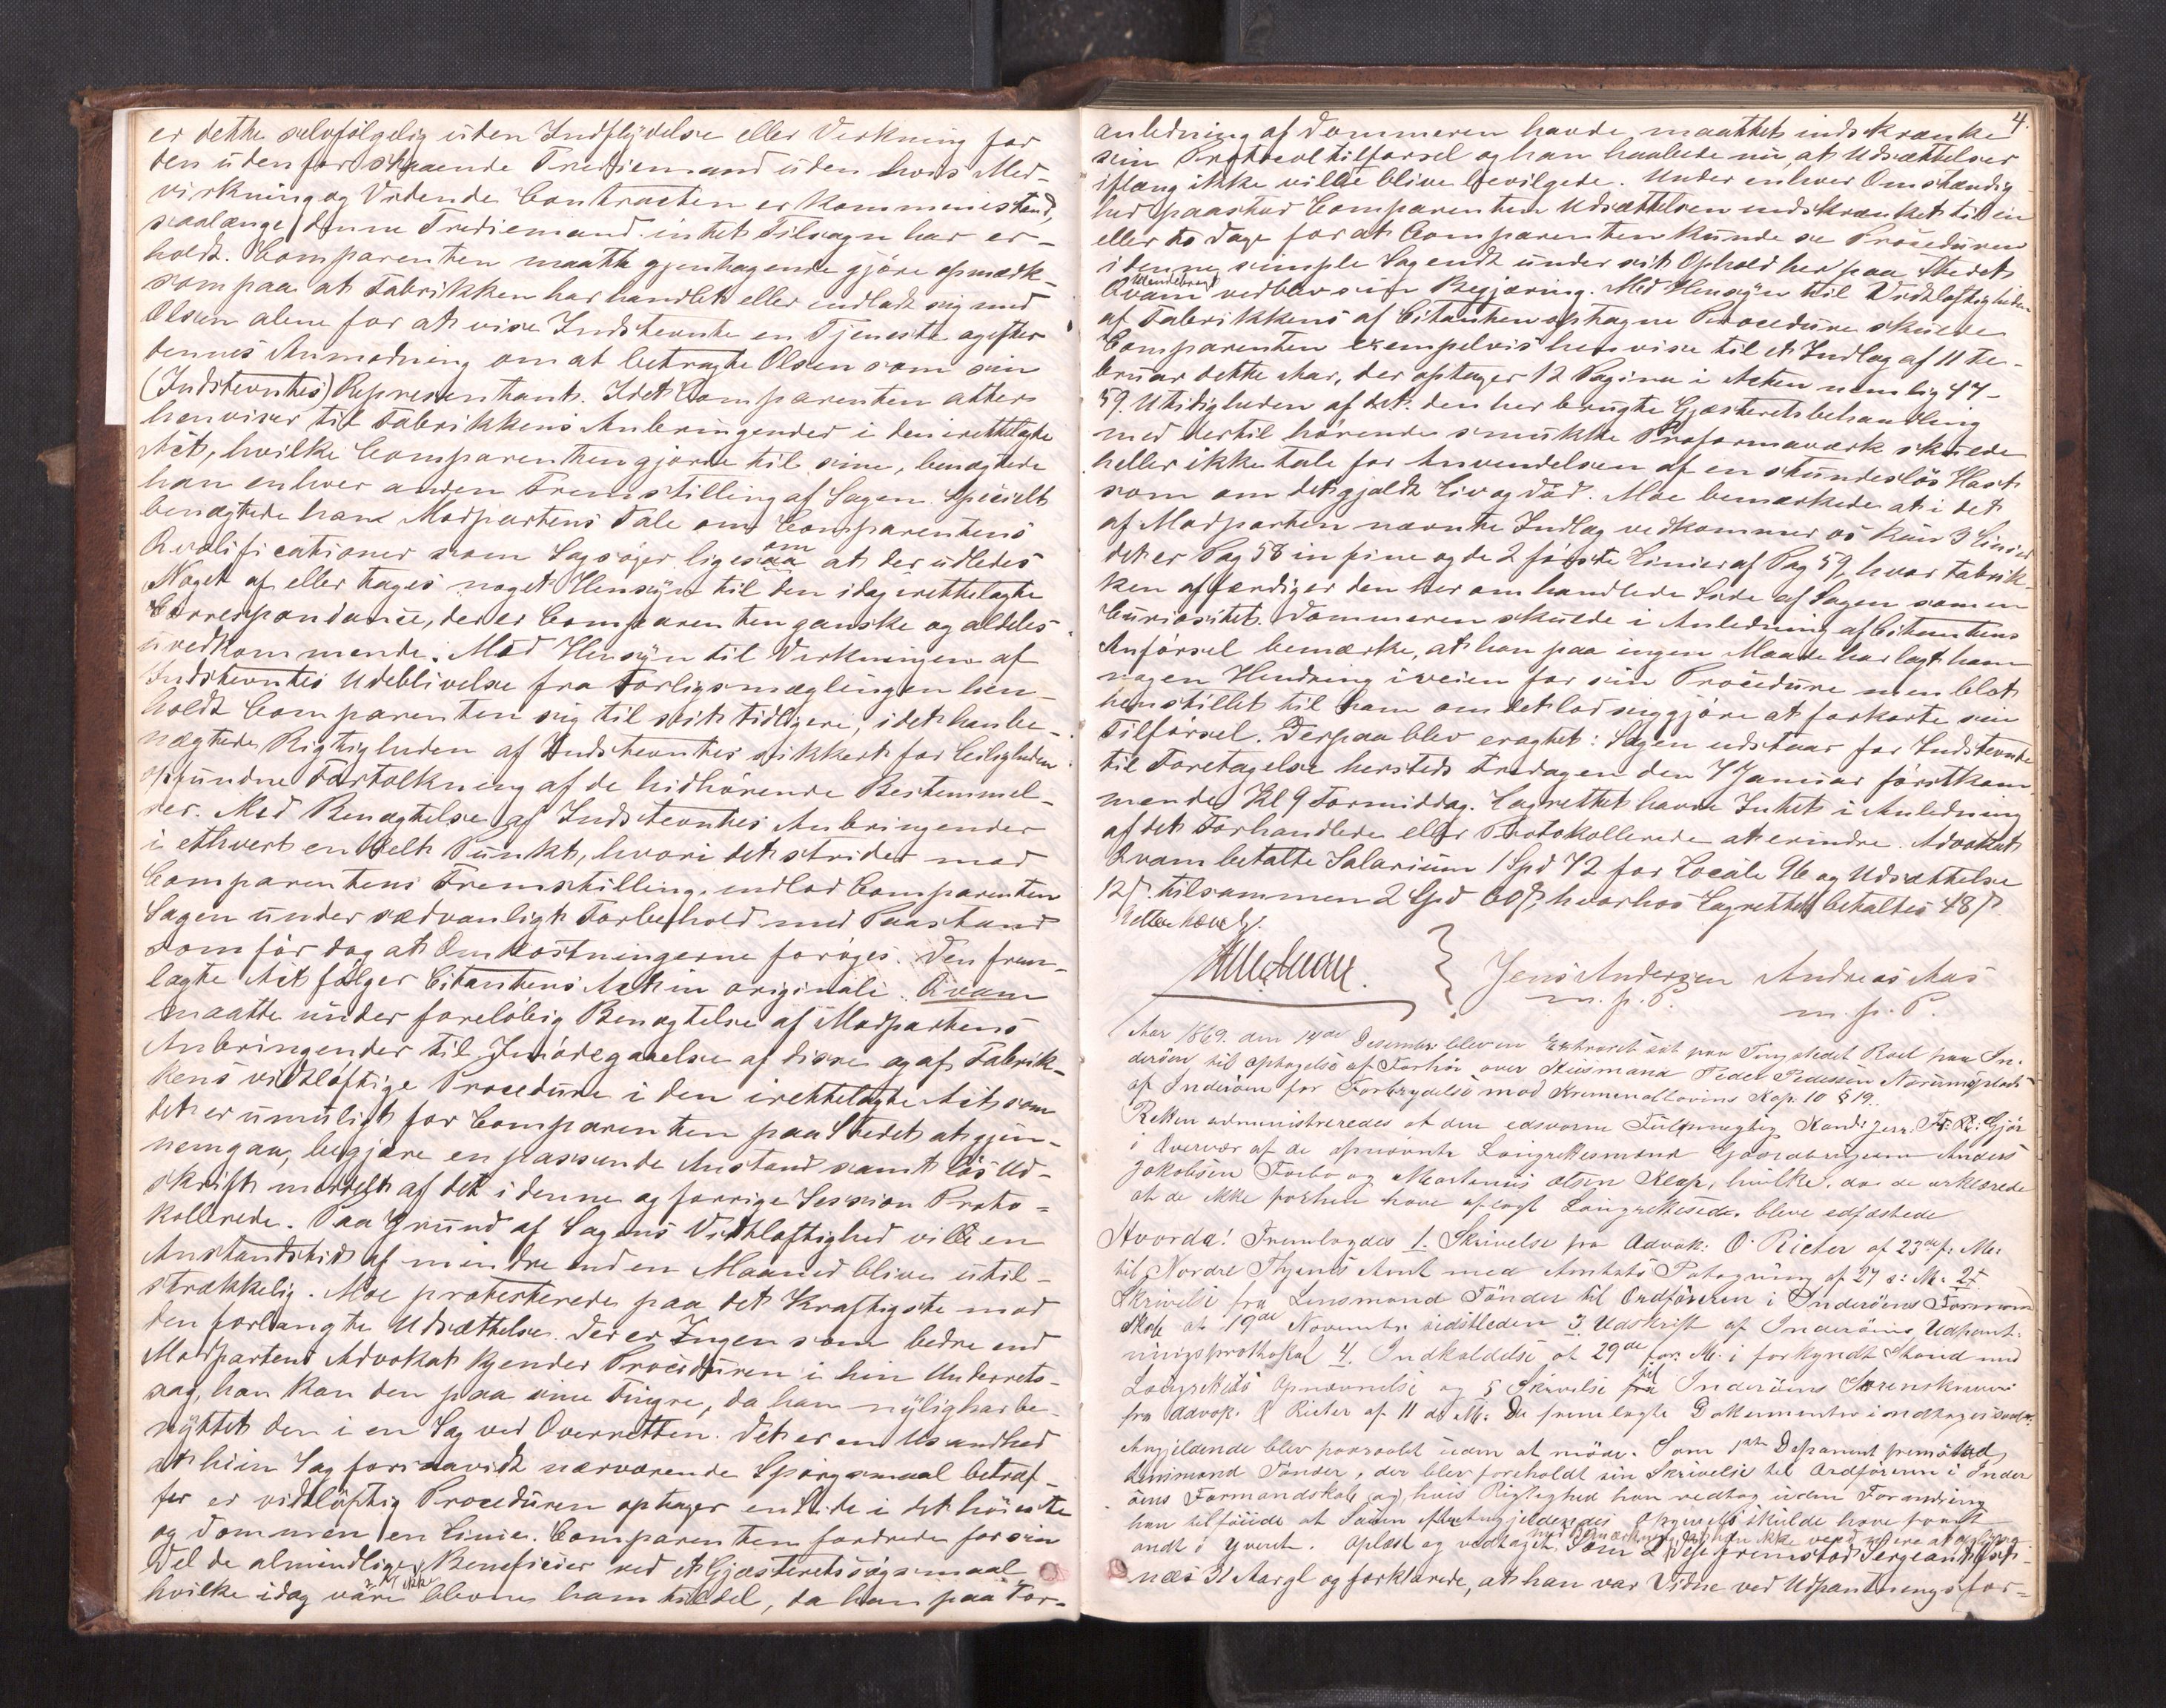 er dette selvfølgelig uden Indflydelse eller Virkning for
den udenfor staaende Trediemand uden hvis Med-
virkning og Vidende Contracten er kommen istand,
saalænge denne Trediemand intet Tilsagn har er-
holdt. Comparenten maatte gjentagende gjøre opmærk-
som paa at Fabrikken har handlet eller indladt sig med
Olsen alene for at vise Indstevnte en Tjeneste og efter
dennes Anmodning om at betragte Olsen som sin
(Indstevntes) Representant. Idet Comparenten atter
henviser til Fabrikkens Anbringender i den irettelagte
Act, hvilke Comparenten gjorde til sine, benægtede
han enhver anden Fremstilling af Sagen. Specielt
benægtede han Modpartens Tale om Comparentens
Qvalificationer som Sagsøger ligesaa om at der udledes
Noget af eller tages noget Hensyn til den idag irettelagte
Correspondance, der er Comparenten ganske og aldeles
uvedkommende. Med Hensyn til Virkningen af
Indstevntes Udeblivelse fra Forligsmæglingen hen-
holdt Comparenten sig til sit tidligere, idet han be-
nægtede Rigtigheden af Indstevntes sikkert for Leiligheden
opfundne Fortolkning af de hidhørende Bestemmel-
ser. Med Benægtelse af Indstevntes Anbringender
i ethvert enkelt Punkt, hvori det strider mod
Comparentens Fremstilling indlod Comparenten
Sagen under sædvanligt Forbehold med Paastand
som før dog at Omkostningerne forøges. Den frem-
lagte Act følger Citantens Act in originali. Qvam
maatte under foreløbig Benægtelse af Modpartens
Anbringender til Imødegaaelse af disse og af Fabrik-
kens vidtløftige Procedure i den irettelagte Act som
det er umuligt for Comparenten paa Stedet at gjen-
nemgaa, begjære en passende Anstand samt løs Ud-
skrift meddelt af det i denne og forrige Session Proto-
kollerede. Paa Grund af Sagens Vidtløftighed vil en
Anstandstid af mindre end en Maaned blive util-
strækkelig. Moe protesterede paa det Kraftigste mod
den forlangte Udsættelse. Der er Ingen som bedre end
Modpartens Advokat kjender Proceduren i hin Underrets-
sag, han kan den paa sine Fingre, da han nylig har be-
nyttet den i en Sag ved Overretten. Det er en Usandhed
at hiin Sag forsaavidt nærværende Spørgsmaal betræf-
fer er vidtløftig Proceduren optager en Side i det høieste
og Dommen en Linie. Comparenten fordrede for sin
Del de almindlige Beneficier ved et Gjæsteretssøgsmaal
hvilke idag vare ikke blevne ham tildel, da han paa For-
4.
anledning af Dommeren havde maattet indskrænke
sin Protocoltilførsel og han haabede nu, at Udsættelser
iflæng ikke ville blive bevilgede. Under enhver Omstændig
hed paastod Comparenten Udsættelsen indskrænket til en
eller to Dage for at Comparenten kunde se Proceduren
i denne simple Sag endt under sit Ophold her paa Stedet
Qvam vedblev sin Begjæring. Med Hensyn til Vidtløftigheden
af Fabrikkens af Citanten optagne Procedure skulde
Comparenten exempelvis henvise til et Indlæg af 11 Fe-
bruar dette Aar, der optager 12 Pagina i Acten nemlig 47-
59. Utidigheden af det. den her brugte Gjæsteretsbehandling
med dertil hørende smukke Proformaværk skulde
heller ikke tale for Anvendelsen af en stundesløs Hast
som om det gjaldt Liv og Død. Moe bemærkede at i det
af Modparten nævnte Indlæg vedkommer os kun 3 Linier
det er Pag 58 in fine og de 2 første Linier af Pag 59, hvor Fabrik-
ken affærdiger den her omhandlede Side af Sagen som en
Curiositet. Dommeren skulde i Anledning af Citantens
Anførsel bemærke, at han paa ingen Maade har lagt ham
nogen Hindring iveien for sin Procedure men blot
henstillet til ham om det lod sig gjøre at forkorte sin
Tilførsel. Derpaa blev eragtet: Sagen udstaar for Indstevnte
til Foretagelse hersteds Fredagen den 7 Januar førstkom-
mende Kl 9 Formiddag. Lagrettet havde Intet i Anledning
af det Forhandlede eller Protokollerede at erindre. Advokat
Qvam betalte Salarium 1 Spd 72 for Locale 96 og Udsættelse
12 ß. tilsammen 2 Spd 60 ß, hvorhos Lagrettet betaltes 48 ß
Retten hævet.
Jens Andersen Andreas Aas
m. p. P. m. p. P.
Aar 1869. den 14de Desember blev en Extraret sat paa Tingstedet Roel paa In-
derøen til Optagelse af Forhør over Huusmand Peder Pedersen Nesseimsplads
af Inderøen for Forbrydelse mod Kriminallovens Kap. 10 § 19.
Retten administreredes af den edsvorne Fuldmægtig Kand: jur. Fr. R. Gjør
i Overvær af de opnævnte Laugrettesmænd Gaardbrugerne Anders
Jakobsen Forbo og Martinus Olsen Kleop, hvilke, da de erklærede
at de ikke forhen have aflagt Laugrettesed, bleve edfæstede
Hvorda! Fremlagdes 1. Skrivelse fra Advok: O. Rieter af 23de f: M:
til Nordre Thjems Amt med Amtets Paategning af 27 s: M: 2.
Skrivelse fra Lensmand Tønder til Ordføreren i Inderøens Formand
skab af 19de November sidstleden 3. Udskrift af Inderøens Udpant-
ningsprothokol 4. Indkaldelse af 29de for: M: i forkyndt Stand med
Laugrettets Opnævnelse og 5 Skrivelse til Inderøens Sorenskriveri
fra Advok. O Rieter af 11 ds M: De fremlagte Dokumenter indtages saaledes.
Angjeldende blev paaraabt uden at møde. Som 1ste Deponent fremstod
Lensmand Tønder, der blev foreholdt sin Skrivelse til Ordføreren i Inder
øens Formandskab og hvis Rigtighed han vedtog uden Forandring
han tilføiede at Angjeldendes Opgivelse skulde have fundet
andt i Yverst. Oplæst og vedtaget. Som 2 Dept fremstod Sergeant
næs 31 Aar gl og forklarede, at han var Vidne ved Udpantningsfor-